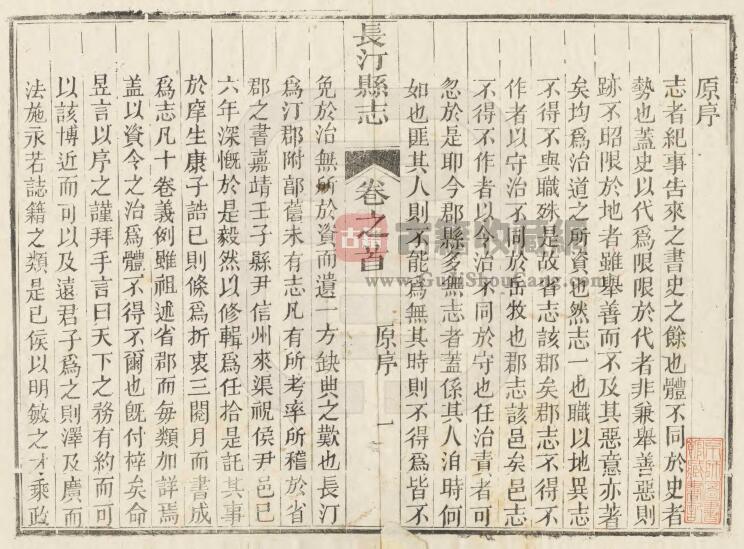 原序
志者紀事告來之書史之餘也體不同於史者
勢也蓋史以代爲限限於代者非兼舉善惡則
跡不昭限於地者雖舉善而不及其惡意亦著
矣均爲治道之所資也然志一也職以地異志
不得不與職殊是故省志該郡矣郡志不得不
作者以守治不同於岳牧也郡志該邑矣邑志
不得不作者以令治不同於守也任治責者可
忽於是耶今郡縣多無志者蓋係其人洎時何
如也匪其人則不能爲無其時則不得爲皆不
長汀縣志
卷之首
原序
一
免於治無所於資而遺一方缺典之歎也長汀
爲汀郡附郭舊未有志凡有所考率所稽於省
郡之書嘉靖壬子縣尹信州來渠祝侯尹邑已
六年深慨於是毅然以修輯爲任拾是託其事
於庠生康子誥已則條爲折衷三閱月而書成
爲志凡十卷義例雖祖述省郡而每類加詳焉
蓋以資令之治爲體不得不爾也旣付梓矣命
昱言以序之謹拜手言曰天下之務有約而可
以該博近而可以及遠君子爲之則澤及廣而
法施永若誌籍之類是已侯以明敏之才乘政
古籍收藏網
www.GuJiShouCang.com